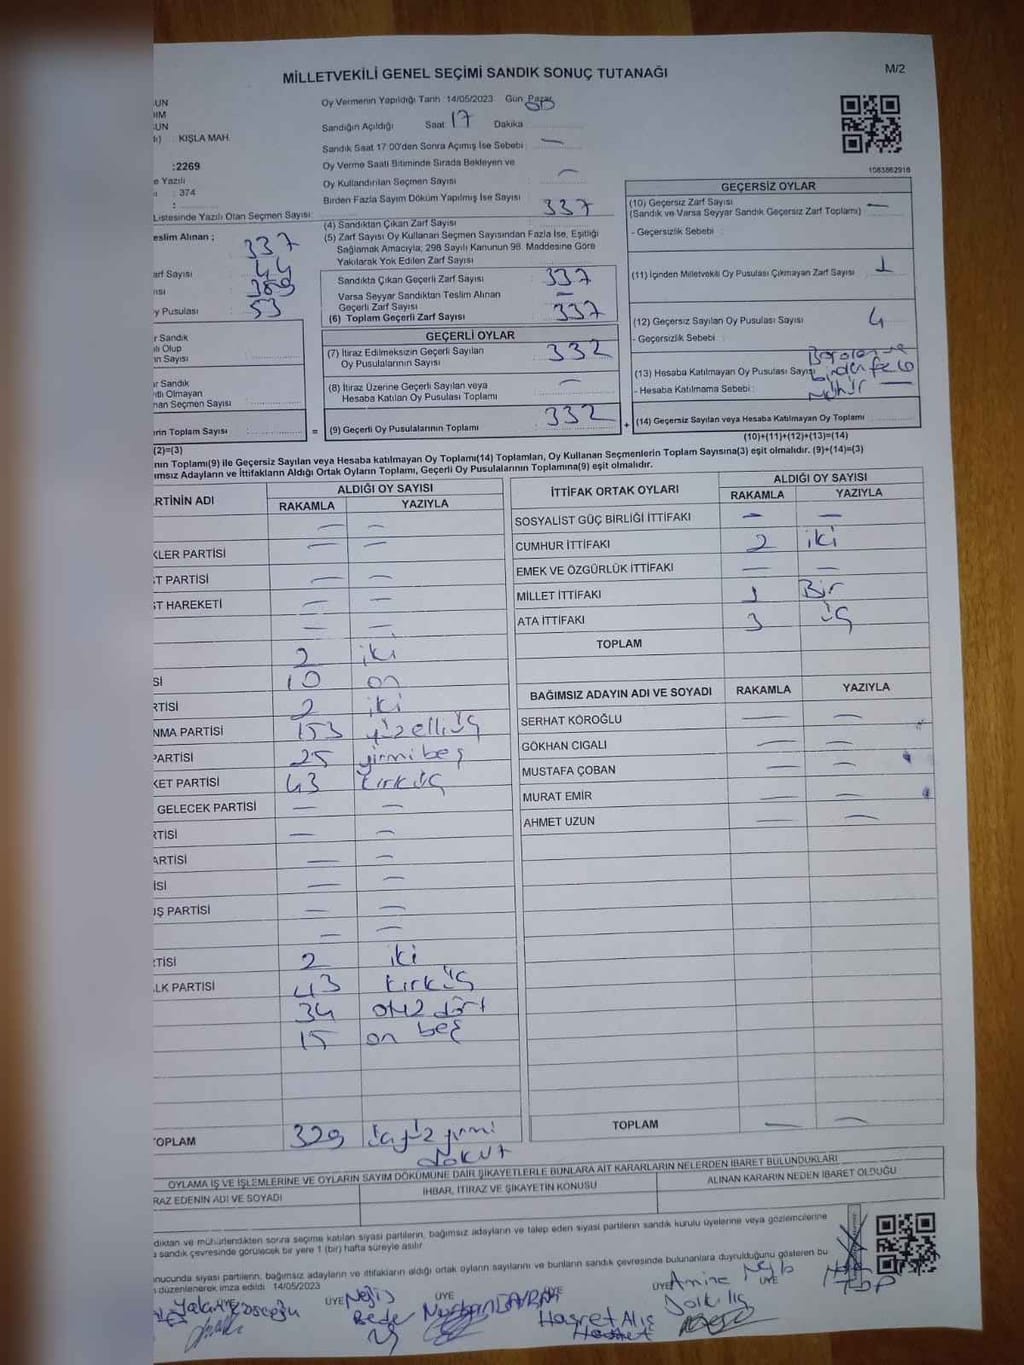 MİLLETVEKİLİ GENEL SEÇİMİ SANDIK SONUÇ TUTANAĞI
M/2
UN
IM
UN
KIŞLA MAH.
:2269
e Yazılı
: 374
Listesinde Yazılı Olan Seçmen Sayısı:
eslim Alınan : 337
arf Sayısı 44
ısı 389
y Pusulası 53
r Sandık
lı Olup
n Sayısı
r Sandık
ıtlı Olmayan
nan Seçmen Sayısı
rin Toplam Sayısı
(2)=(3)
Oy Vermenin Yapıldığı Tarih :14/05/2023 Gün Pazar
Sandığın Açıldığı Saat 17 Dakika
Sandık Saat 17:00'den Sonra Açımış İse Sebebi : —
Oy Verme Saati Bitiminde Sırada Bekleyen ve
Oy Kullandırılan Seçmen Sayısı : —
Birden Fazla Sayım Döküm Yapılmış İse Sayısı :
(4) Sandıktan Çıkan Zarf Sayısı : 337
(5) Zarf Sayısı Oy Kullanan Seçmen Sayısından Fazla İse, Eşitliği
Sağlamak Amacıyla; 298 Sayılı Kanunun 98. Maddesine Göre
Yakılarak Yok Edilen Zarf Sayısı
Sandıkta Çıkan Geçerli Zarf Sayısı : 337
Varsa Seyyar Sandıktan Teslim Alınan
Geçerli Zarf Sayısı : —
(6) Toplam Geçerli Zarf Sayısı : 337
GEÇERLİ OYLAR
(7) İtiraz Edilmeksizin Geçerli Sayılan
Oy Pusulalarının Sayısı : 332
(8) İtiraz Üzerine Geçerli Sayılan veya
Hesaba Katılan Oy Pusulası Toplamı : —
= (9) Geçerli Oy Pusulalarının Toplamı : 332 +
1083862918
GEÇERSİZ OYLAR
(10) Geçersiz Zarf Sayısı : —
(Sandık ve Varsa Seyyar Sandık Geçersiz Zarf Toplamı)
- Geçersizlik Sebebi :
(11) İçinden Milletvekili Oy Pusulası Çıkmayan Zarf Sayısı : 1
(12) Geçersiz Sayılan Oy Pusulası Sayısı : 4
- Geçersizlik Sebebi :
(13) Hesaba Katılmayan Oy Pusulası Sayısı
- Hesaba Katılmama Sebebi : —
(14) Geçersiz Sayılan veya Hesaba Katılmayan Oy Toplamı
(10)+(11)+(12)+(13)=(14)
nın Toplamı(9) ile Geçersiz Sayılan veya Hesaba katılmayan Oy Toplamı(14) Toplamları, Oy Kullanan Seçmenlerin Toplam Sayısına(3) eşit olmalıdır. (9)+(14)=(3)
ımsız Adayların ve İttifakların Aldığı Ortak Oyların Toplamı, Geçerli Oy Pusulalarının Toplamına(9) eşit olmalıdır.
RTİNİN ADI ALDIĞI OY SAYISI
RAKAMLA YAZIYLA
— —
KLER PARTİSİ — —
T PARTİSİ — —
T HAREKETİ — —
— —
2 iki
Sİ 10 on
RTİSİ 2 iki
NMA PARTİSİ 153 yüzelliüç
PARTİSİ 25 yirmibeş
KET PARTİSİ 43 kırküç
GELECEK PARTİSİ — —
RTİSİ — —
ARTİSİ — —
İSİ — —
Ş PARTİSİ — —
— —
RTİSİ 2 iki
LK PARTİSİ 43 kırküç
34 otuz dört
15 on beş
TOPLAM 329 üçyüz yirmi
dokuz
İTTİFAK ORTAK OYLARI ALDIĞI OY SAYISI
RAKAMLA YAZIYLA
SOSYALİST GÜÇ BİRLİĞİ İTTİFAKI — —
CUMHUR İTTİFAKI 2 iki
EMEK VE ÖZGÜRLÜK İTTİFAKI — —
MİLLET İTTİFAKI 1 Bir
ATA İTTİFAKI 3 üç
TOPLAM
BAĞIMSIZ ADAYIN ADI VE SOYADI RAKAMLA YAZIYLA
SERHAT KÖROĞLU — —
GÖKHAN CIGALI — —
MUSTAFA ÇOBAN — —
MURAT EMİR — —
AHMET UZUN — —
TOPLAM — —
OYLAMA İŞ VE İŞLEMLERİNE VE OYLARIN SAYIM DÖKÜMÜNE DAİR ŞİKAYETLERLE BUNLARA AİT KARARLARIN NELERDEN İBARET BULUNDUKLARI
RAZ EDENİN ADI VE SOYADI İHBAR, İTİRAZ VE ŞİKAYETİN KONUSU ALINAN KARARIN NEDEN İBARET OLDUĞU
dıktan ve mühürlendikten sonra seçime katılan siyasi partilerin, bağımsız adayların ve talep eden siyasi partilerin sandık kurulu üyelerine veya gözlemcilerine
a sandık çevresinde görülecek bir yere 1 (bir) hafta süreyle asılır
nucunda siyasi partilerin, bağımsız adayların ve ittifakların aldığı ortak oyların sayılarını ve bunların sandık çevresinde bulunanlara duyrulduğunu gösteren bu
düzenlenerek imza edildi. 14/05/2023
ÜYE ÜYE ÜYE ÜYE ÜYE
Amine
Hasret Alış